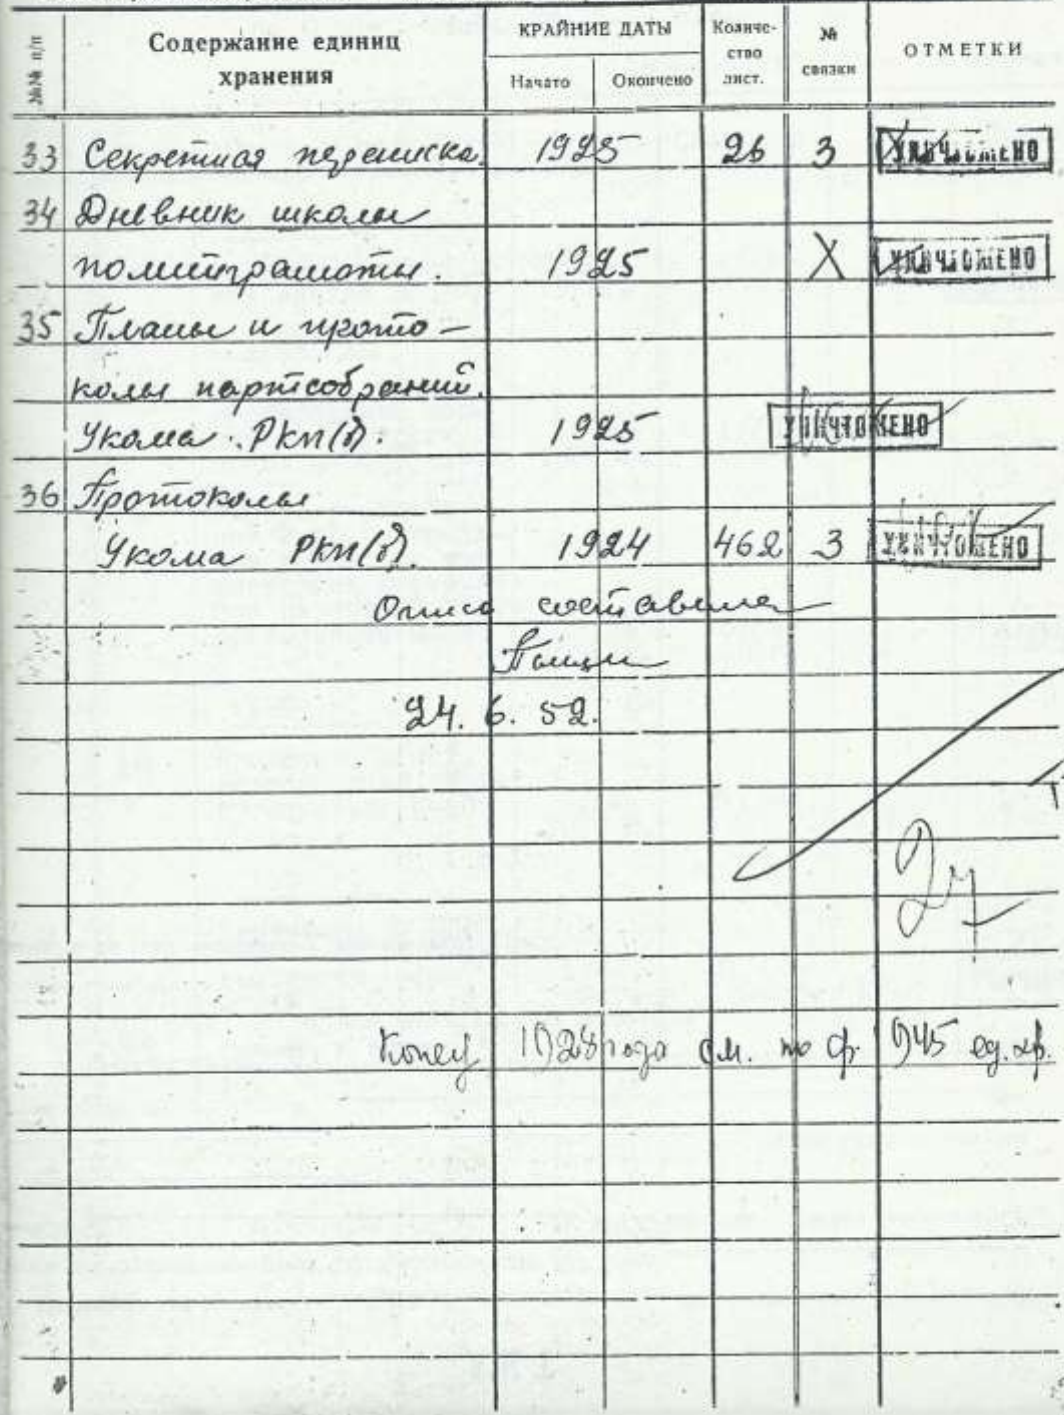 №№ п/п Содержание единиц хранения КРАЙНИЕ ДАТЫ Количе-ство лист. № связки ОТМЕТКИ
Начато Окончено
33 Секретная переписка. 1925 26 3 УНИЧТОЖЕНО
34 Дневник школы
политграмоты. 1925 X УНИЧТОЖЕНО
35 Планы и прото-
колы партсобраний.
Укома РКП(б). 1925 УНИЧТОЖЕНО
36 Протоколы
Укома РКП(б). 1924 462 3 УНИЧТОЖЕНО
Опись составила
24. 6. 52.
Конец 1928 года см. по ф. 945 ед. хр.